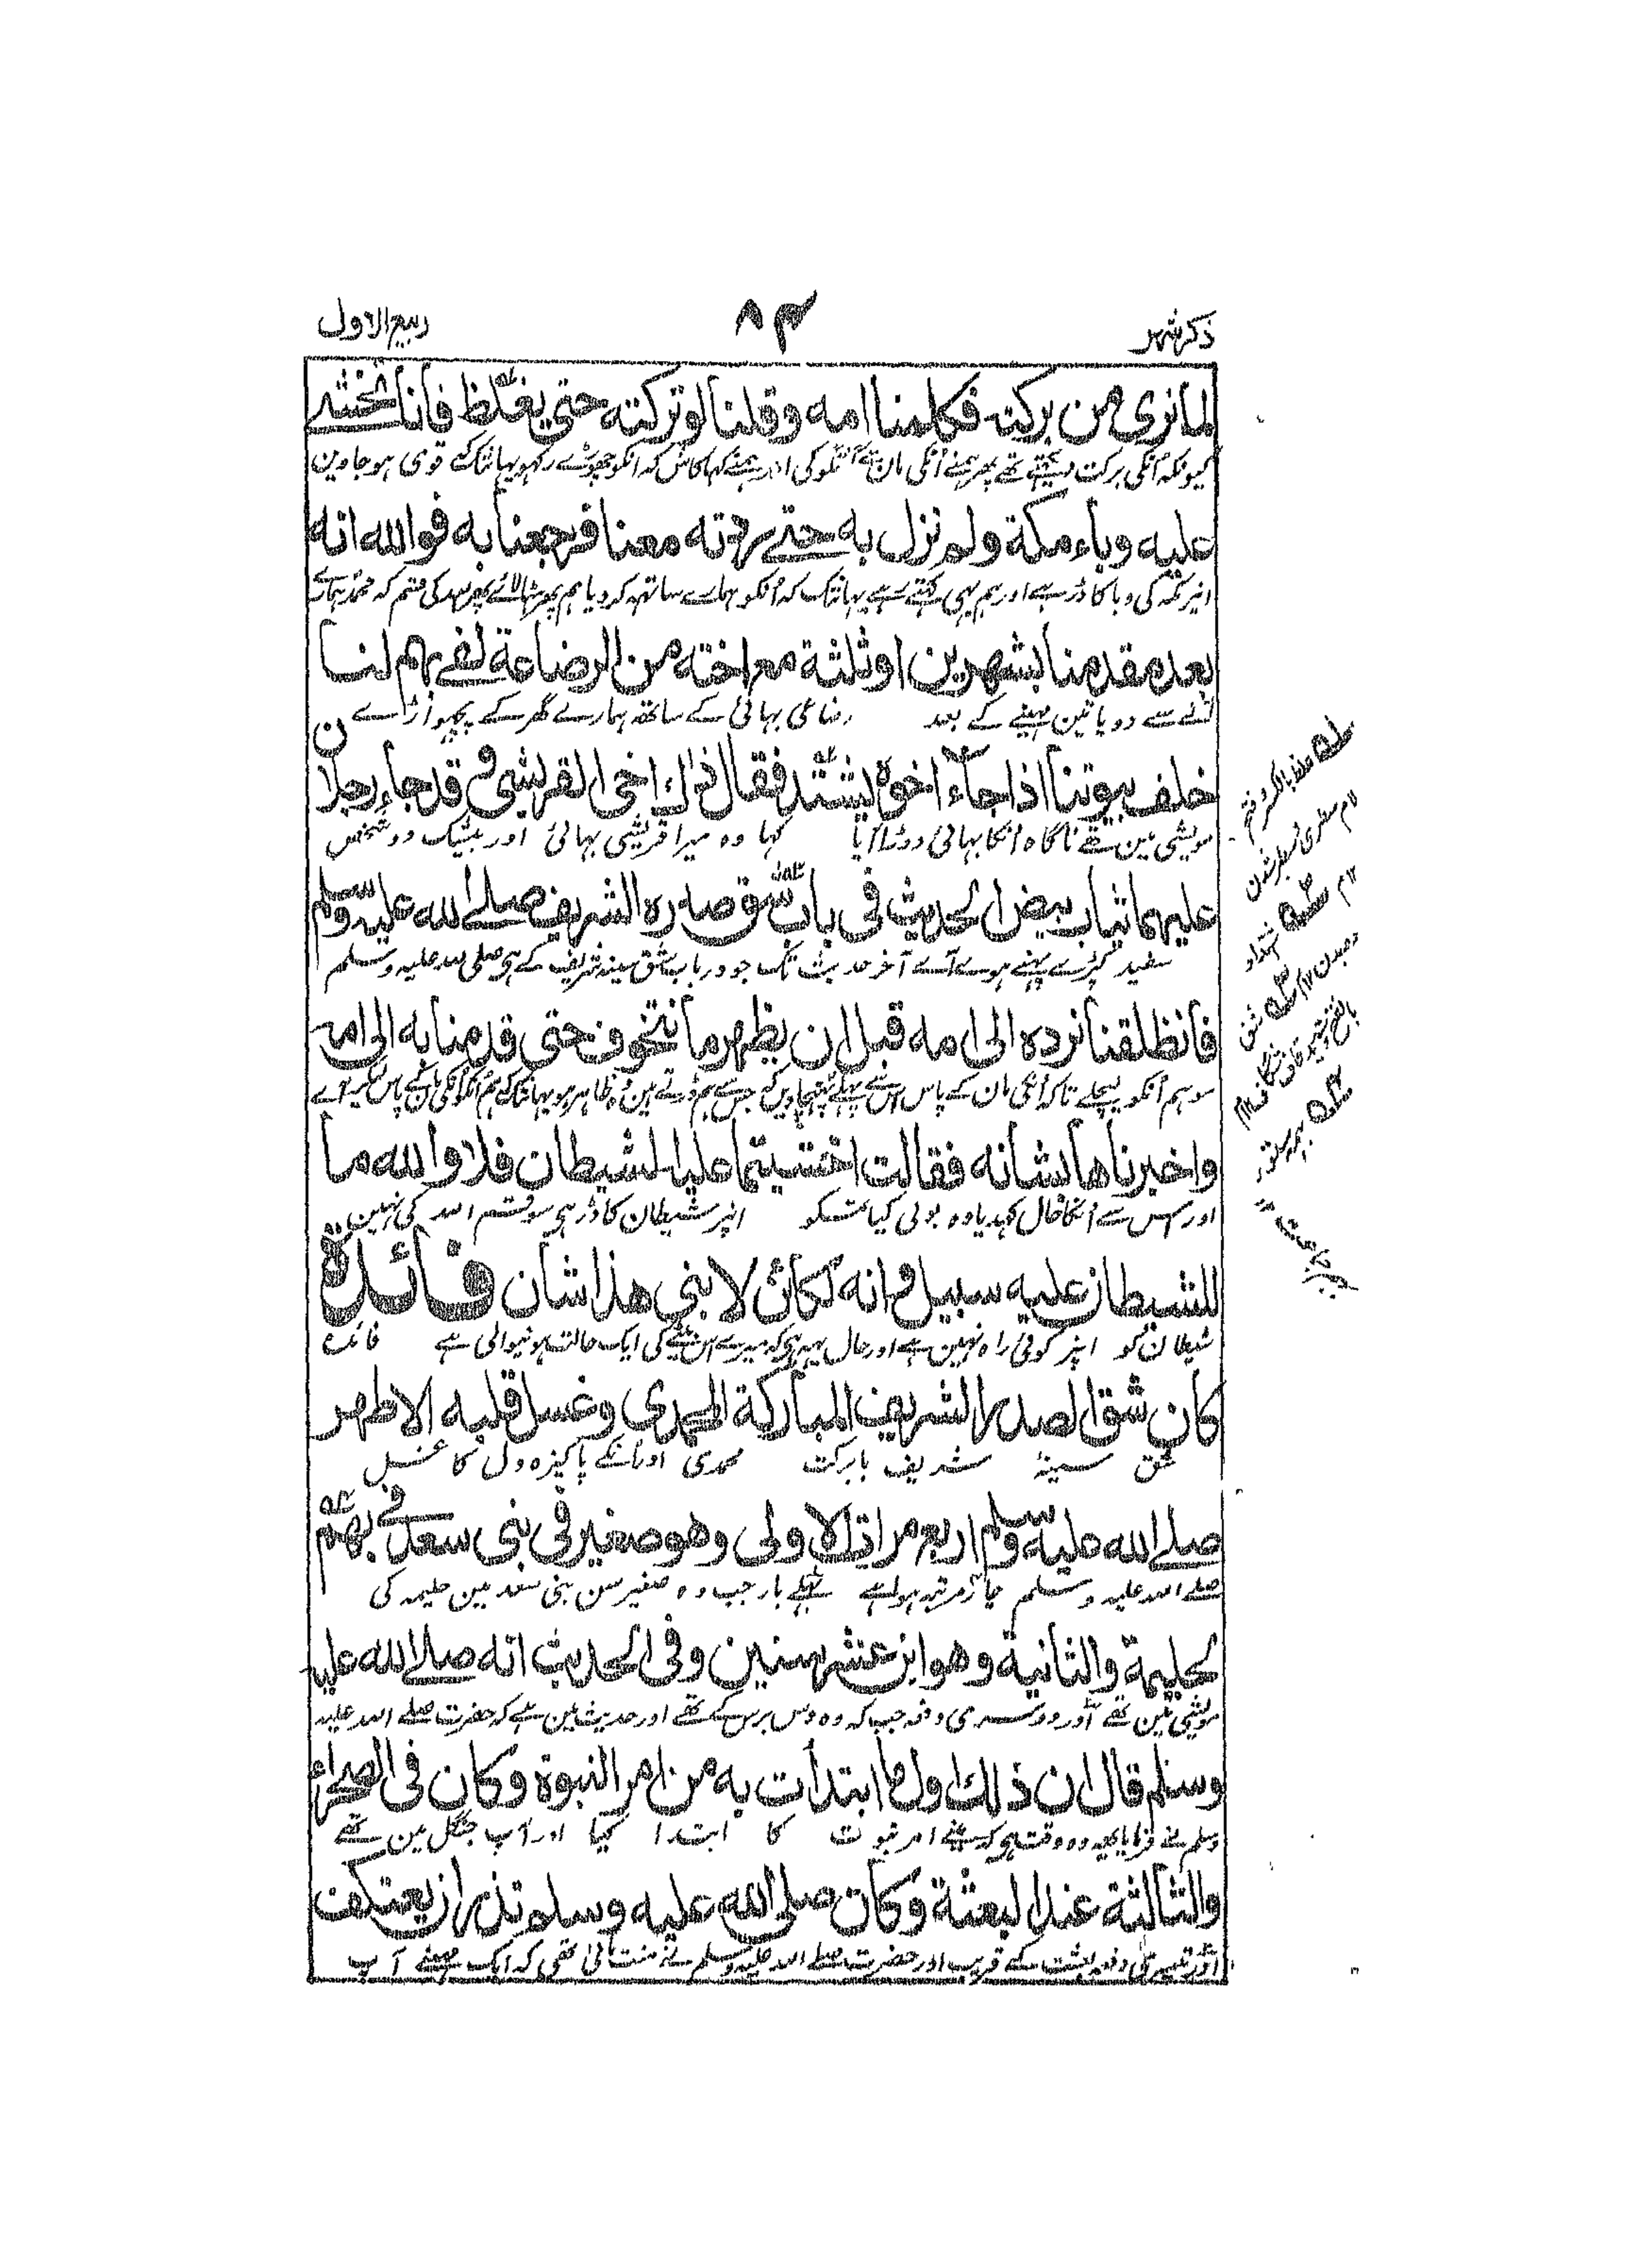 ذکر شہر ۸۴ ربیع الاول
لما نری من برکته فکلمنا امه وقلنا لو ترکته حتی یغلظ فانا نخشے
کیونکہ اُنکی برکت دیکھتے تھے پھر ہمنے اُنکی مان سے گفتگو کی اور ہمنے کہا کاش کہ انکو چھوڑے رکھو یہانتک کہ قوی ہو جاوین
علیه وباء مکة ولم نزل به حتے ردته معنا فرجعنا به فوالله انه
انپر مکہ کی وبا کا ڈر ہے اور ہم یہی کہتے رہے یہانتک کہ اُنکو ہمارے ساتھ کر دیا ہم پھر لائے پھر اللہ کی قسم کہ محمد ہمارے
بعد مقدمنا بشهرین او ثلثة مع اخته من الرضاعة لفے بهم لنا
آنے سے دو یا تین مہینے کے بعد رضاعی بہائی کے ساتھ ہمارے گھر کے پچھواڑے
خلف بیوتنا اذا جاء اخوه یشتد فقال ذاك اخی القرشی قد جاء رجلان
مویشی مین تھے ناگاہ اُنکا بہائی دوڑا آیا کہا وہ میرا قریشی بہائی اور بیشک دو شخص
علیهما ثیاب بیض الحدیث فی باب شق صدره الشریف صلے الله علیه وسلم
سفید کپڑے پہنے ہوے آے آخر حدیث تک جو در باب شق سینہ شریف کے ہی صلی اللہ علیہ وسلم
فانطلقنا نرده الی امه قبل ان یظهر ما نتخوف حتی قدمنا به الی امه
سو ہم اُنکو لیچلے تاکہ اُنکی مان کے پاس اس سے پہلے پہنچاوین کہ جس سے ہم ڈرتے ہین وہ ظاہر ہو یہانتک کہ ہم اُنکو اُنکی مان کے پاس لیکر آے
واخبرناها بشانه فقالت اخشیتما علیه الشیطان فلا والله ما
اور اس سے اُنکا حال کہدیا وہ بولی کیا تمکو انپر شیطان کا ڈر ہی سو قسم اللہ کی نہین
للشیطان علیه سبیل وانه لکائن لابنی هذا شان فائدة
شیطان کو انپر کوئی راہ نہین ہے اور حال یہ ہی کہ میرے اس بیٹے کی ایک حالت ہونیوالی ہے فائدے
کان شق الصدر الشریف المبارکة المحمدی وغسل قلبه الاطهر
شق سینۂ شریف بابرکت محمدی اور اُنکے پاکیزہ دل کا غسل
صلے الله علیه وسلم اربع مرات الاولی وهو صغیر فی بنی سعد فے بهم
صلے اللہ علیہ وسلم چار مرتبہ ہوا ہے پہلے بار جب وہ صغیر سن بنی سعد مین حلیمہ کی
لحلیمة والثانیة وهو ابن عشر سنین وفی الحدیث انه صلے الله علیه
مویشی مین تھے اور دوسری دفعہ جب کہ وہ دس برس کے تھے اور حدیث مین ہے کہ حضرت صلے اللہ علیہ
وسلم قال ان ذلك اول ما ابتدأت به من امر النبوة وکان فی الصحراء
وسلم نے فرمایا کہ یہ وہ وقت ہی کہ مینے امر نبوت کا ابتدا کیا اور آپ جنگل مین تھے
والثالثة عند البعثة وکان صلی الله علیه وسلم نذر ان یعتکف
اور تیسری دفعہ بعثت کے قریب اور حضرت صلے اللہ علیہ وسلم نے منت مانی تھی کہ ایک مہینے آپ